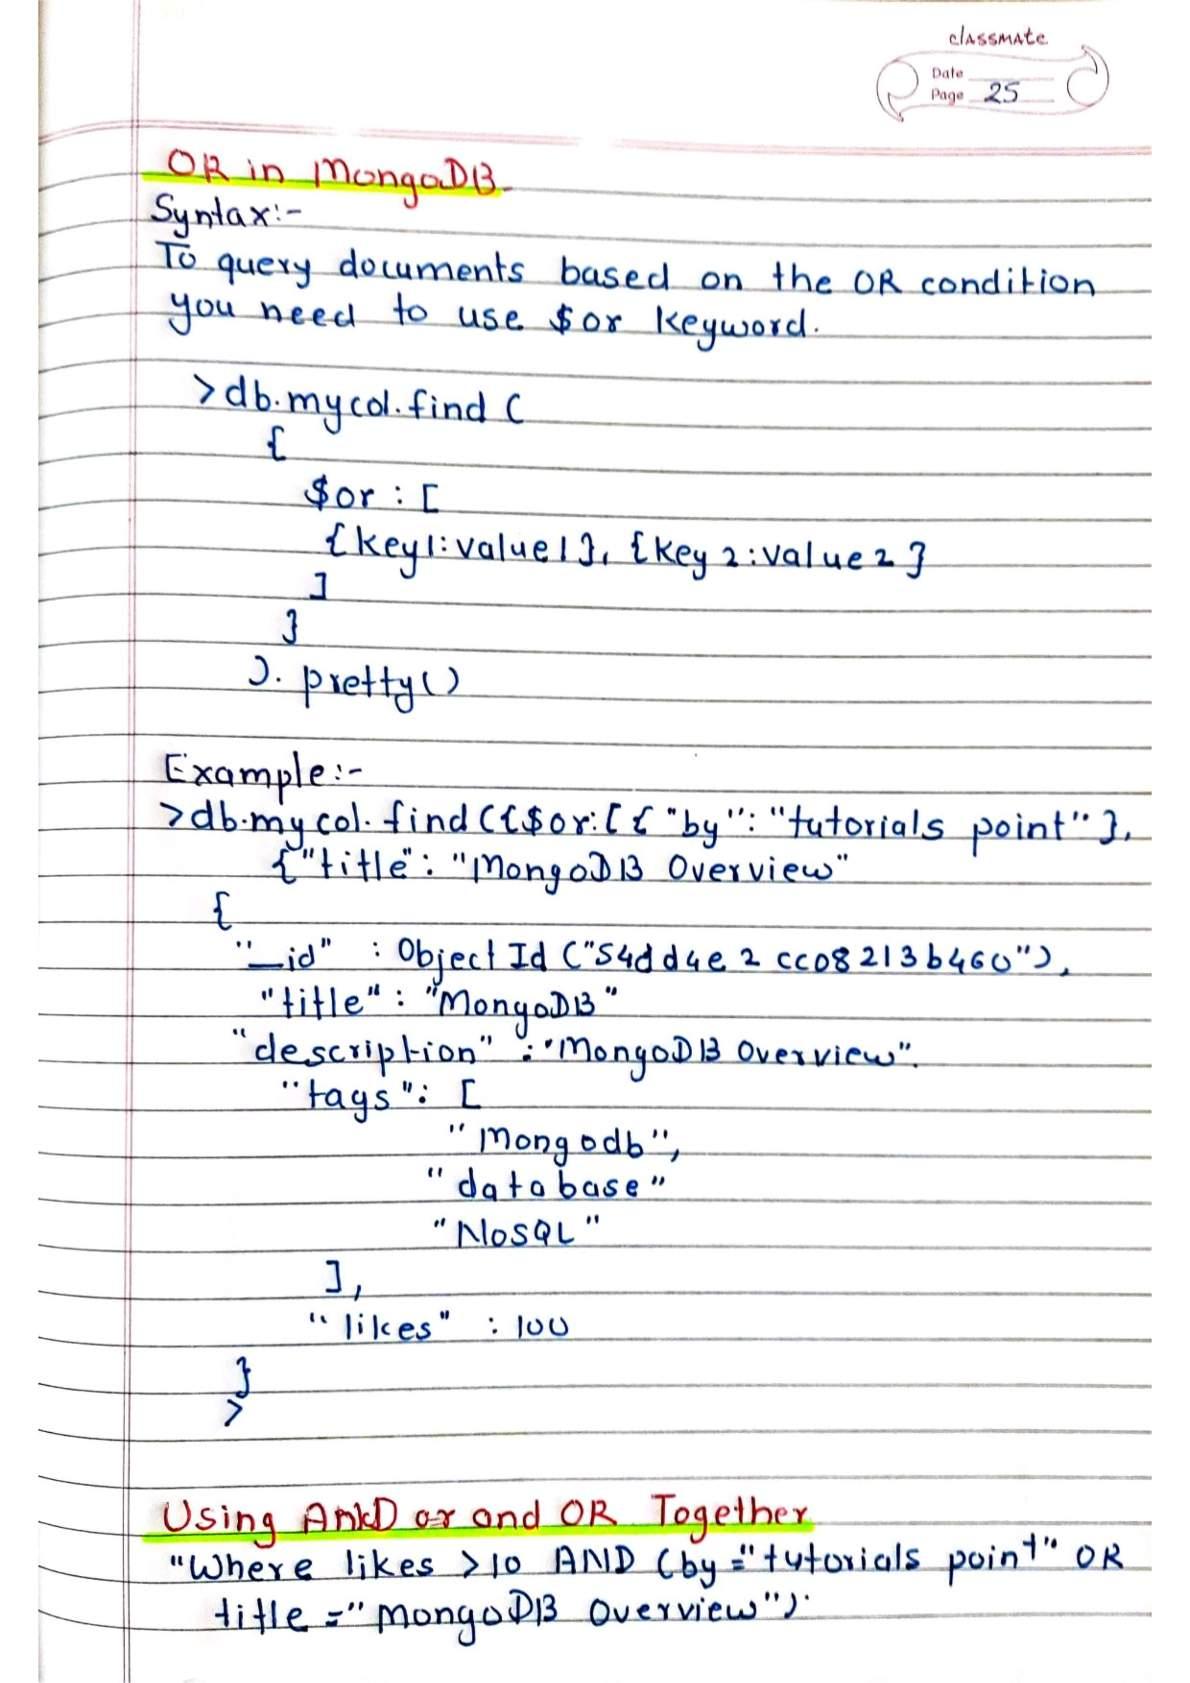 classmate
Date
Page 25
OR in MongoDB
Syntax:-
To query documents based on the OR condition
you need to use $or keyword.
>db.mycol.find (
{
$or : [
{key1:value1}, {key2:value2}
]
}
). pretty()
Example:-
>db.mycol.find({$or:[{"by": "tutorials point"},
{"title": "MongoDB Overview"
{
"_id" : Object Id ("54dd4e2cc08213b460"),
"title" : "MongoDB"
"description" : "MongoDB Overview".
"tags": [
"Mongodb",
"database"
"NoSQL"
],
"likes" : 100
}
>
Using or and OR Together
"Where likes >10 AND (by="tutorials point" OR
title ="MongoDB Overview").